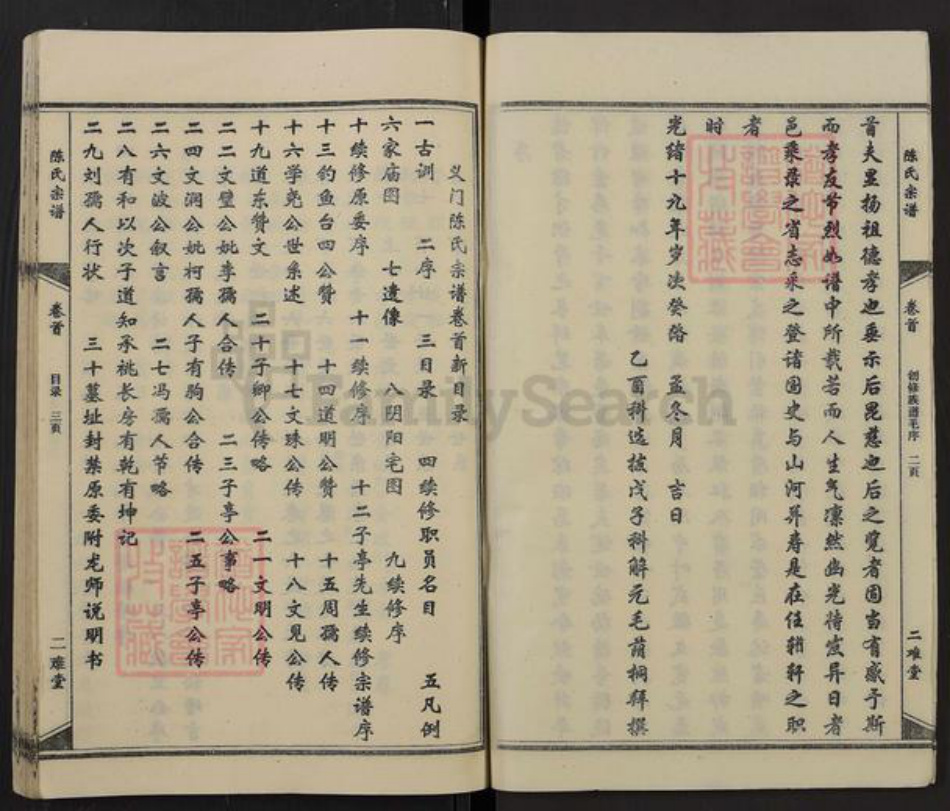 陈氏宗谱
卷首
创修族谱毛序 二页
二难堂
首夫显扬祖德孝也垂示后昆慈也后之览者固当有感于斯
而孝友节烈如谱中所载若而人生气凛然幽光待发异日者
邑乘录之省志采之登诸国史与山河并寿是在任輶轩之职
者
时
光绪十九年岁次癸 孟冬月 吉日
乙酉科选拔戊子科解元毛 桐拜撰
义门陈氏宗谱卷首新目录
一古训 二序一 三目录 四续修职员名目 五凡例
六家庙图 七遗像 八阴阳宅图 九续修序
十续修原委序 十一续修序 十二子亭先生续修宗谱序
十三钓鱼台四公赞 十四道明公赞 十五周孺人传
十六学尧公世系述 十七文珠公传 十八文见公传
十九道东赞文 二十子卿公传略 二一文明公传
二二文璧公妣李孺人合传 二三子亭公事略
二四文润公妣柯孺人子有驹公合传 二五子亭公传
二六文波公叙言 二七冯孺人节略
二八有和以次子道知承祧长房有乾有坤记
二九刘孺人行状 三十墓址封禁原委附龙师说明书
陈氏宗谱
卷首
目录 三页
二难堂
FamilySearch